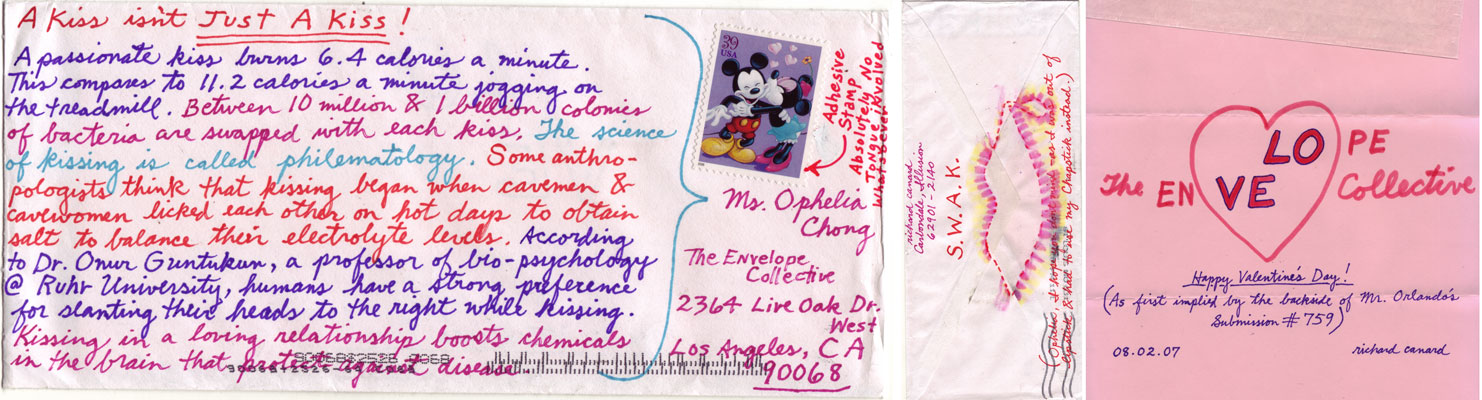 A Kiss isn't Just A Kiss!
A passionate kiss burns 6.4 calories a minute.
This compares to 11.2 calories a minute jogging on
the treadmill. Between 10 million & 1 billion colonies
of bacteria are swapped with each kiss. The science
of kissing is called philematology. Some anthro-
pologists think that kissing began when cavemen &
cavewomen licked each other on hot days to obtain
salt to balance their electrolyte levels. According
to Dr. Onur Guntukun, a professor of bio-psychology
@ Ruhr University, humans have a strong preference
for slanting their heads to the right while kissing.
Kissing in a loving relationship boosts chemicals
in the brain that protect against disease.
39
USA
Adhesive
Stamp
Absolutely No
Tongue Involved
Whatsoever
Ms. Ophelia
Chong
The Envelope
Collective
2364 Live Oak Dr.
West
Los Angeles, CA
90068
richard canard
Carbondale, Illusion
62901-2140
S.W.A.K.
(Ophelia, I hope you don't mind as I was out of
lipstick & had to use my Chapstick instead.)
The EN VE LO PE Collective
Happy Valentine's Day!
(As first implied by the backside of Mr. Orlando's
Submission # 759)
08.02.07
richard canard